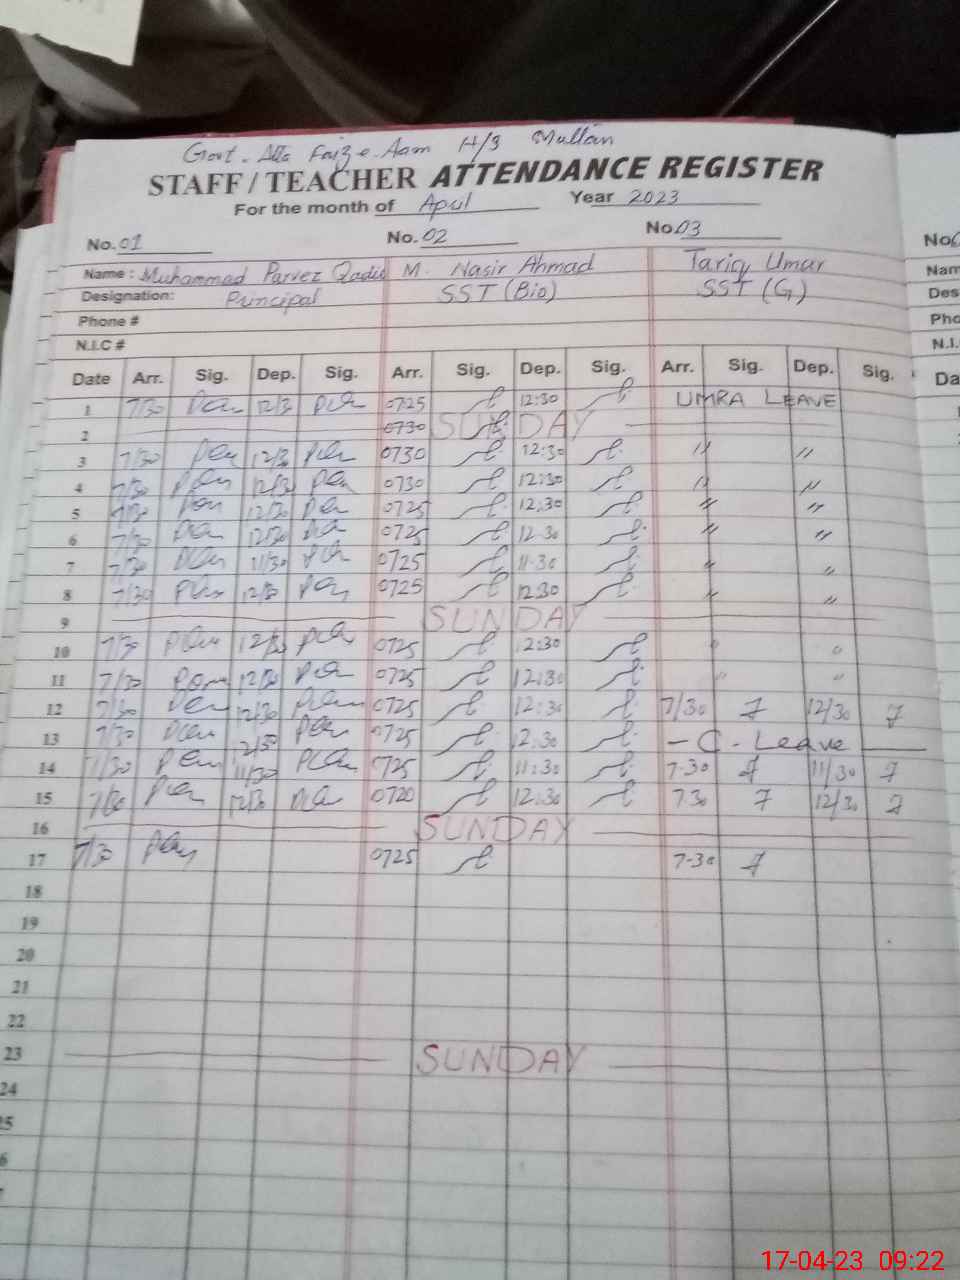 Govt. Alla Faiz e Aam H/S Multan
STAFF / TEACHER ATTENDANCE REGISTER
For the month of April Year 2023
No. 01 No. 02 No. 03
Name : Muhammad Parvez Qadir M. Nasir Ahmad Tariq Umar
Designation: Principal SST (Bio) SST (G)
Phone #
N.I.C #
Date Arr. Sig. Dep. Sig. Arr. Sig. Dep. Sig. Arr. Sig. Dep. Sig.
1 7/30 12/30 0725 12:30 UMRA LEAVE
2 0730 SUNDAY
3 7/30 12/30 0730 12:30 〃 〃
4 7/30 12/30 0730 12:30 〃 〃
5 7/30 12/30 0725 12:30 〃 〃
6 7/30 12/30 0725 12:30 〃 〃
7 7/30 11/30 0725 11:30 〃 〃
8 7/30 12/30 0725 12:30 〃 〃
9 SUNDAY
10 7/30 12/30 0725 12:30 〃 〃
11 7/30 12/30 0725 12:30 〃 〃
12 7/30 12/30 0725 12:30 7/30 12/30
13 7/30 12/30 0725 12:30 - C. Leave
14 7/30 11/30 0725 11:30 7-30 11/30
15 7/30 12/30 0720 12:30 730 12/30
16 SUNDAY
17 7/30 0725 7-30
18
19
20
21
22
23 SUNDAY
24
17-04-23 09:22